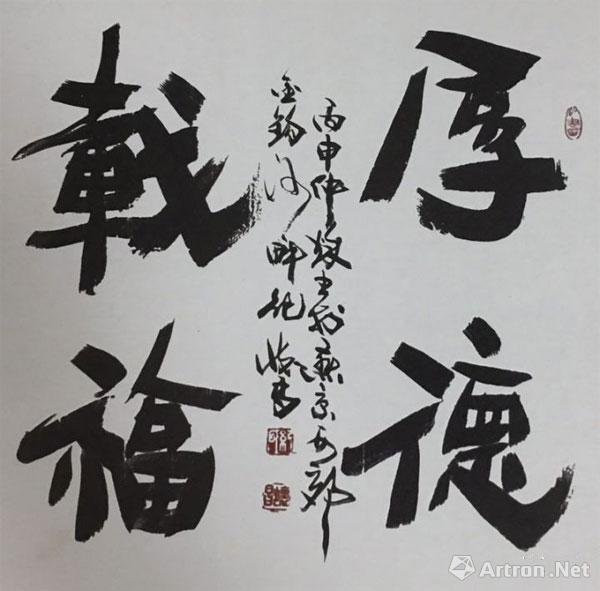 厚德
載福
丙申仲秋書於燕京西郊
金鈎河畔
Artron.Net